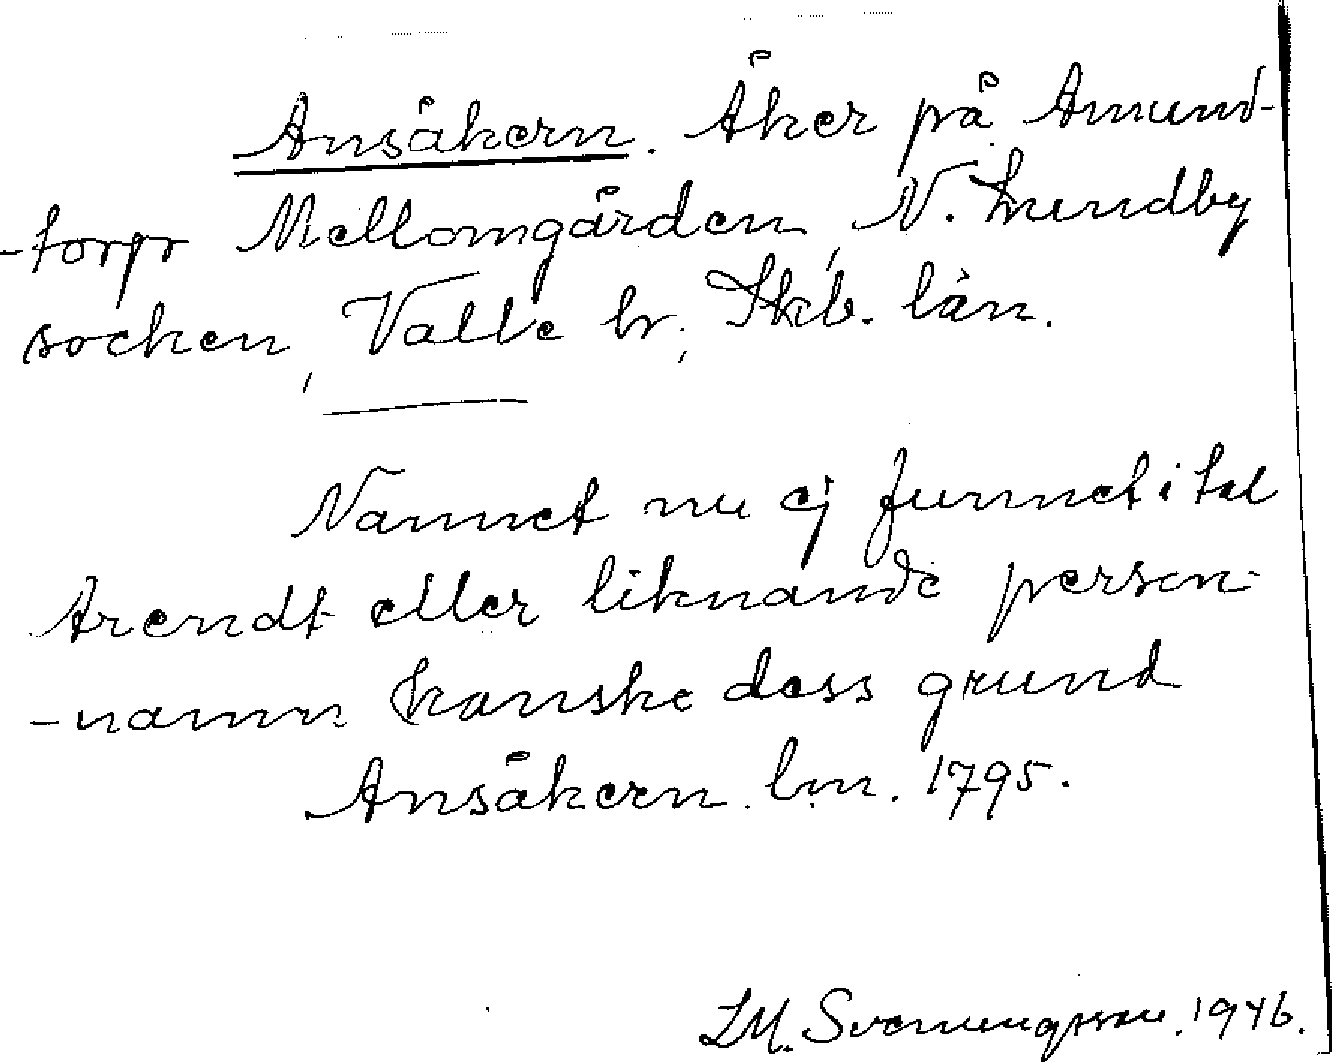 Ansåkern. Åker på Amund-
-torp Mellomgården, N. Lundby
socken, Valle hr, Skb. län.
Namnet nu ej funnet i tal
Arendt eller liknande person-
-namn kanske dess grund
Ansåkern lm. 1795.
LM. Svenungsson. 1946.